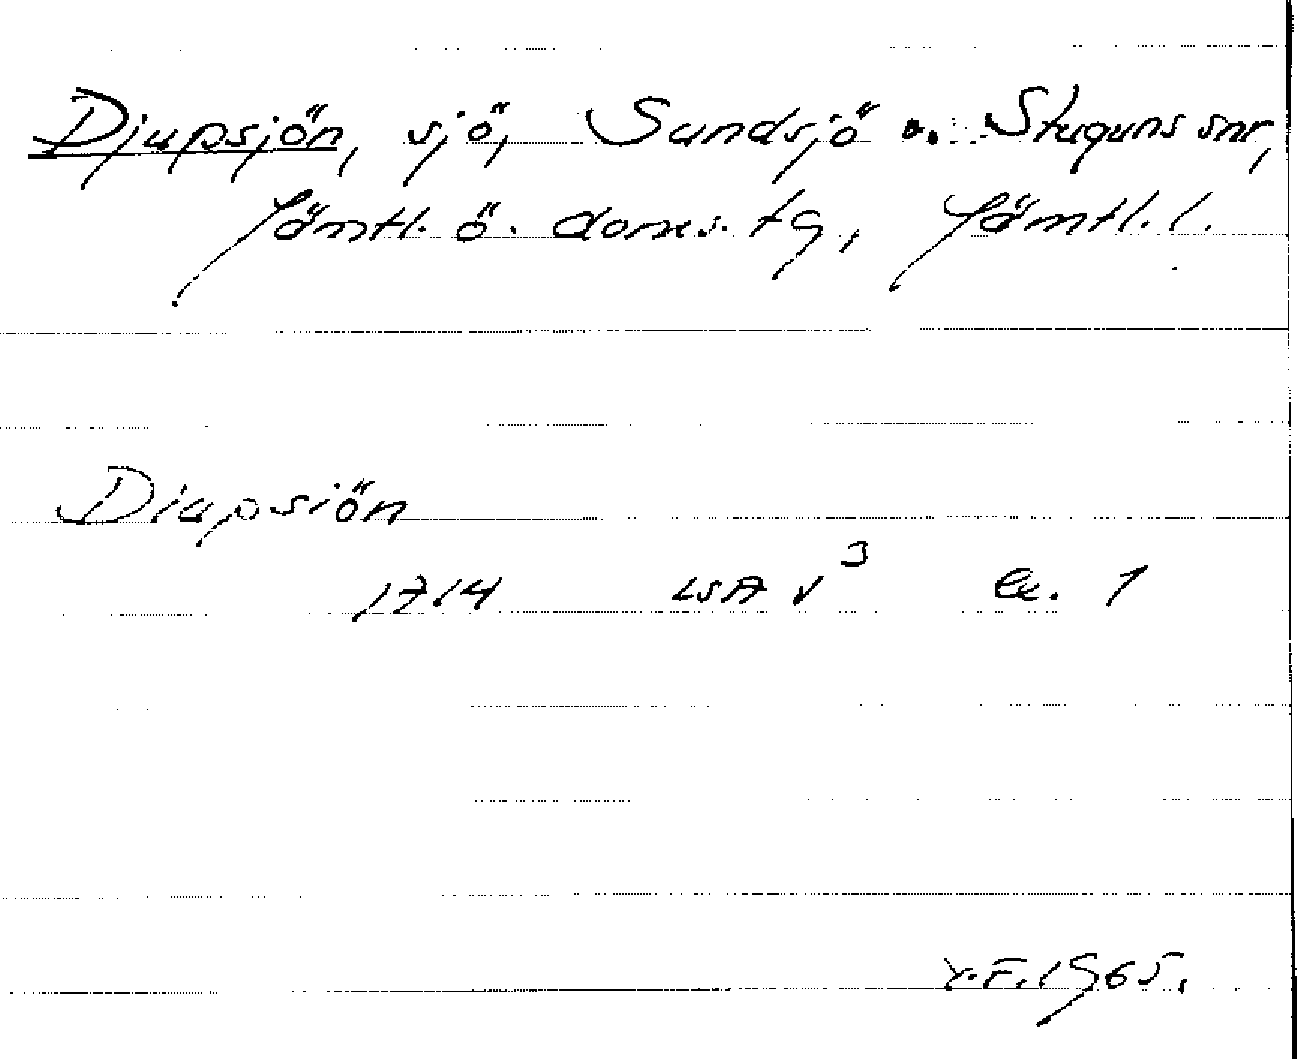 Djupsjön, sjö, Sundsjö o. Stuguns snr,
Jämtl. ö. doms. tg, Jämtl. l.
Diupsiön
1714 LSA V³ Ex. 1
Y.F. 1965.